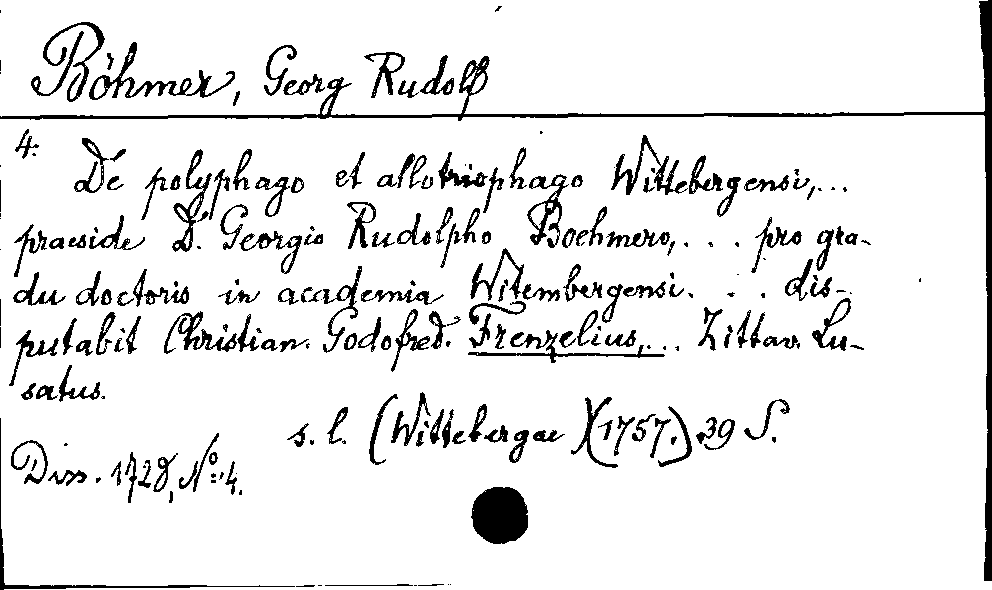 Böhmer, Georg Rudolf
4.
De polyphago et allotriophago Wittebergensi,...
praeside D. Georgio Rudolpho Boehmero,... pro gra-
du doctoris in academia Witembergensi... dis-
putabit Christian. Godofred. Frenzelius,... Zittav. Lu-
satus.
s. l. (Wittebergae)(1757.) 39 S.
Diss. 1728, No. 4.